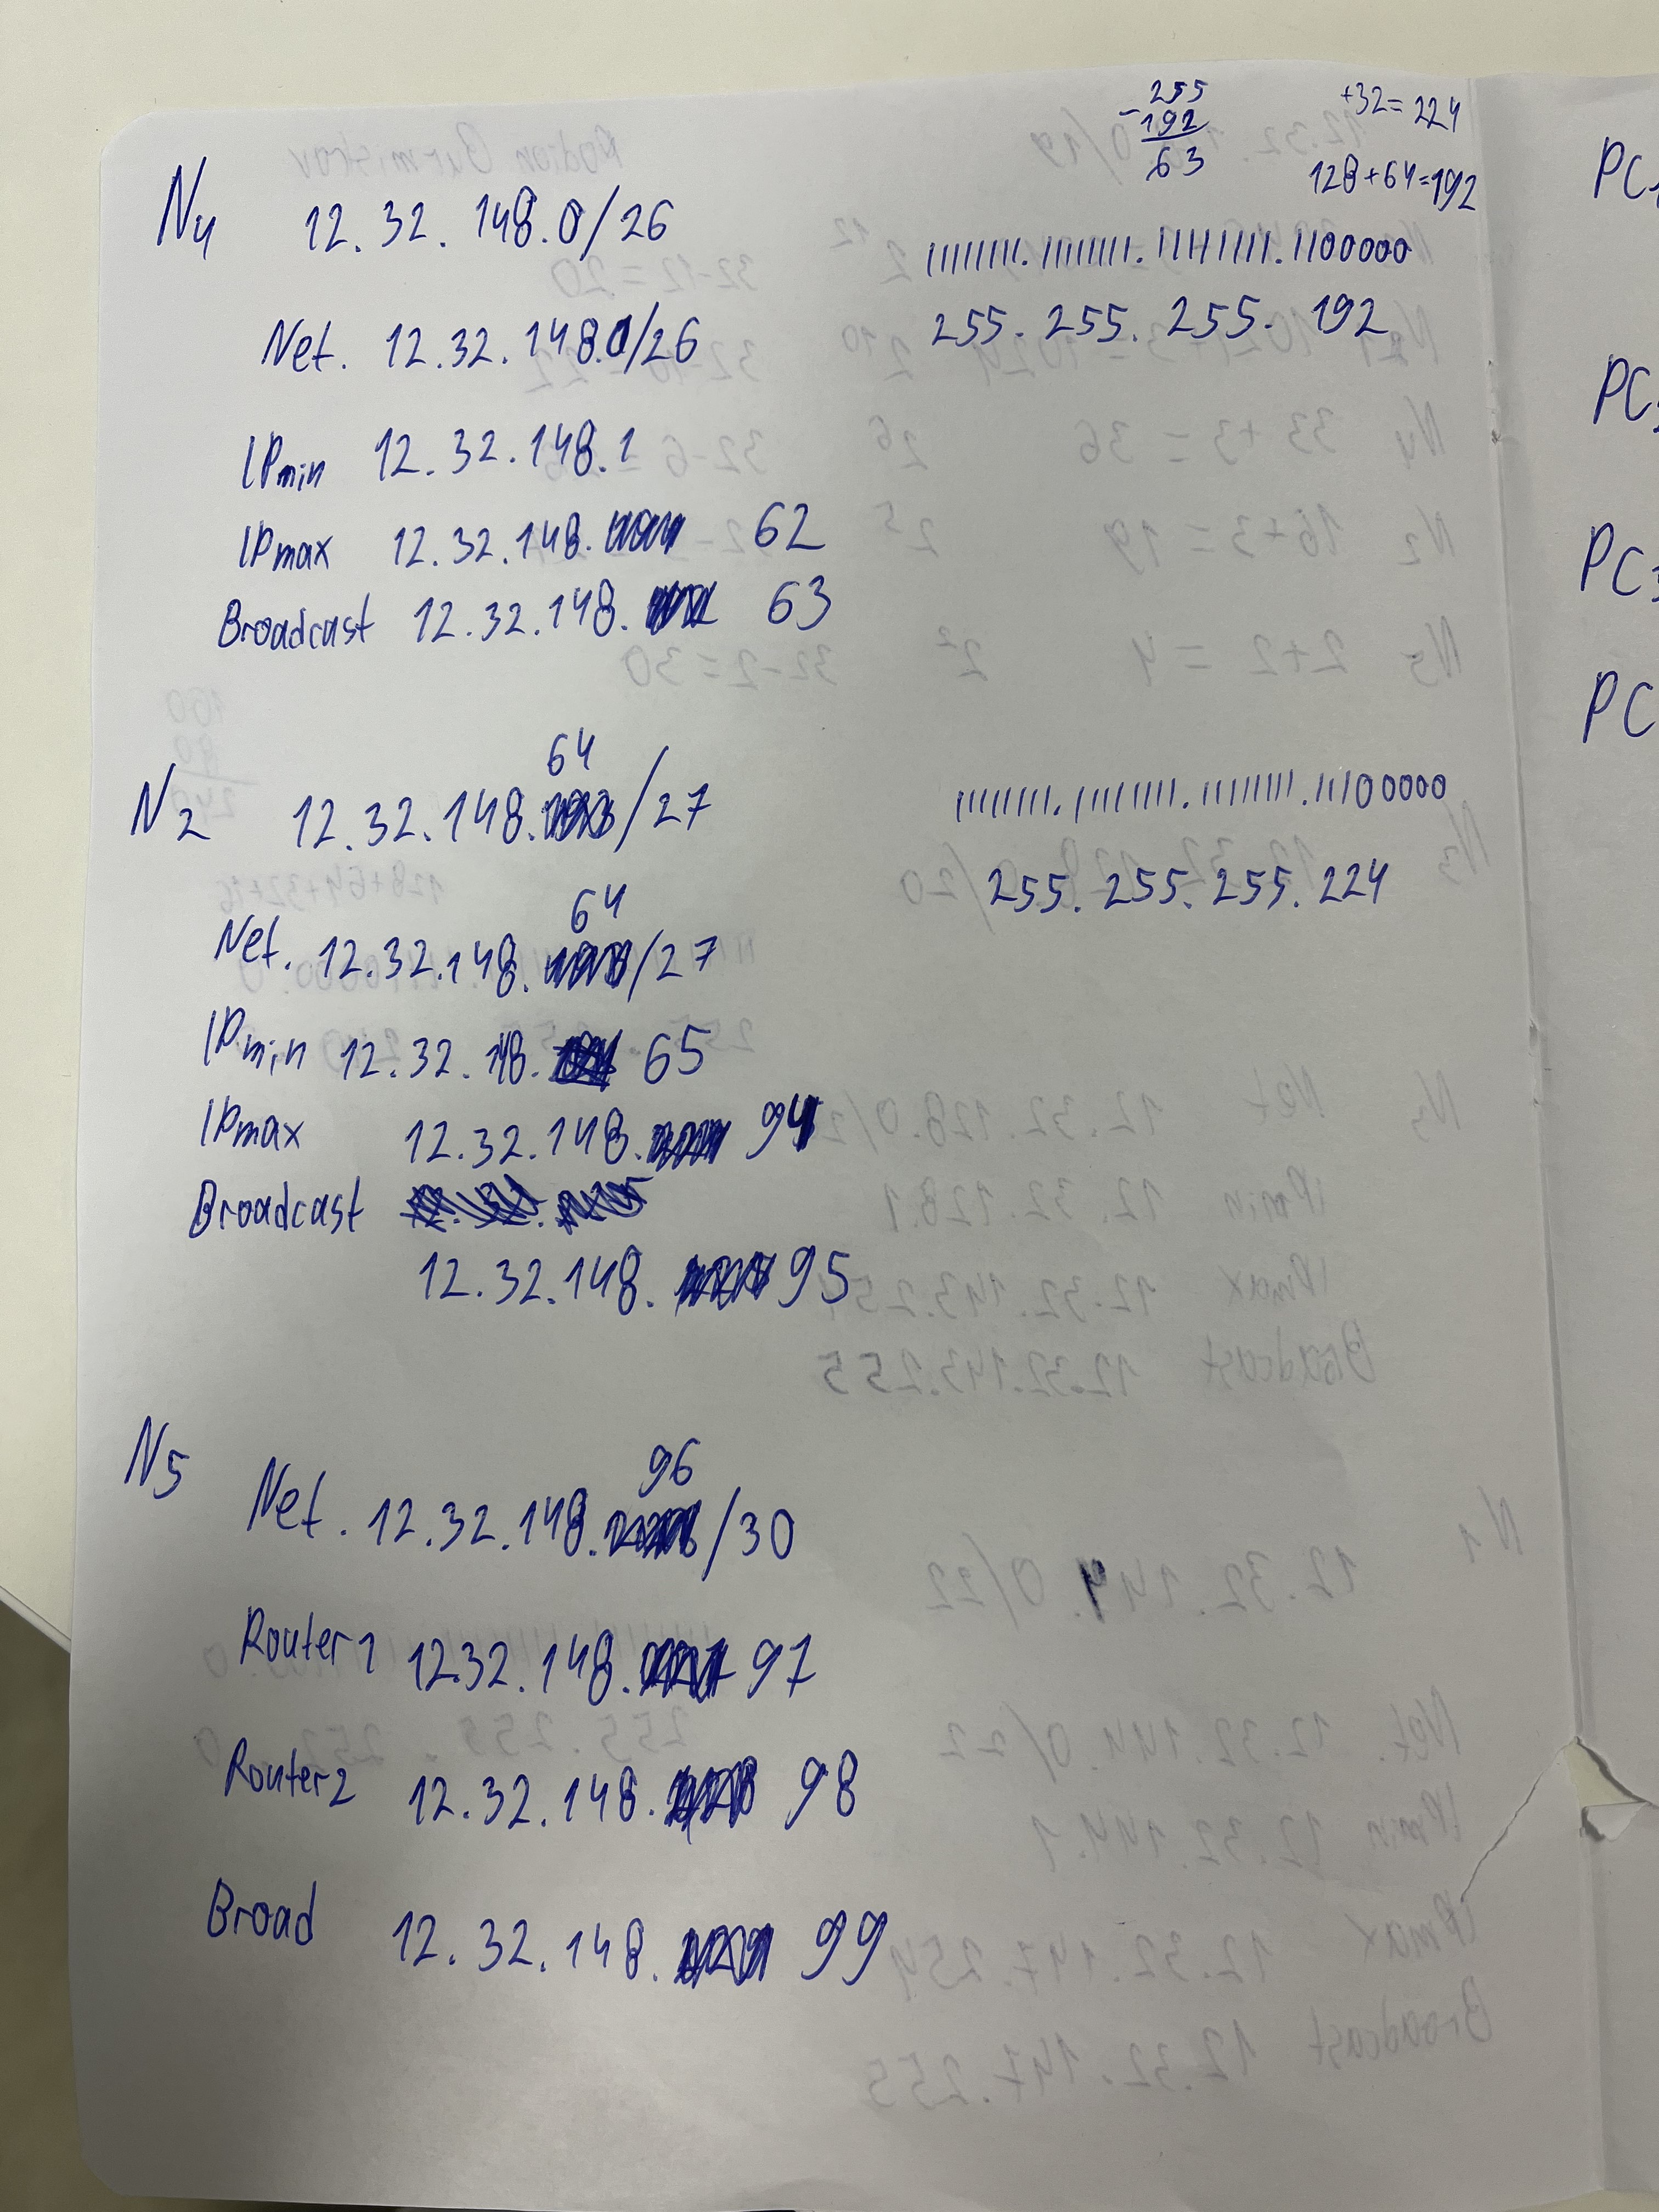 255
-192
63
+32=224
128+64=192
N4 12.32.148.0/26
11111111.11111111.11111111.11000000
255.255.255.192
Net. 12.32.148.0/26
IPmin 12.32.148.1
IPmax 12.32.148. 62
Broadcast 12.32.148. 63
64
N2 12.32.148. /27
11111111.11111111.11111111.11100000
255.255.255.224
64
Net. 12.32.148. /27
IPmin 12.32.148. 65
IPmax 12.32.148. 94
Broadcast
12.32.148. 95
N5
96
Net. 12.32.148. /30
Router1 12.32.148. 97
Router2 12.32.148. 98
Broad 12.32.148. 99
PC
PC
PC
PC